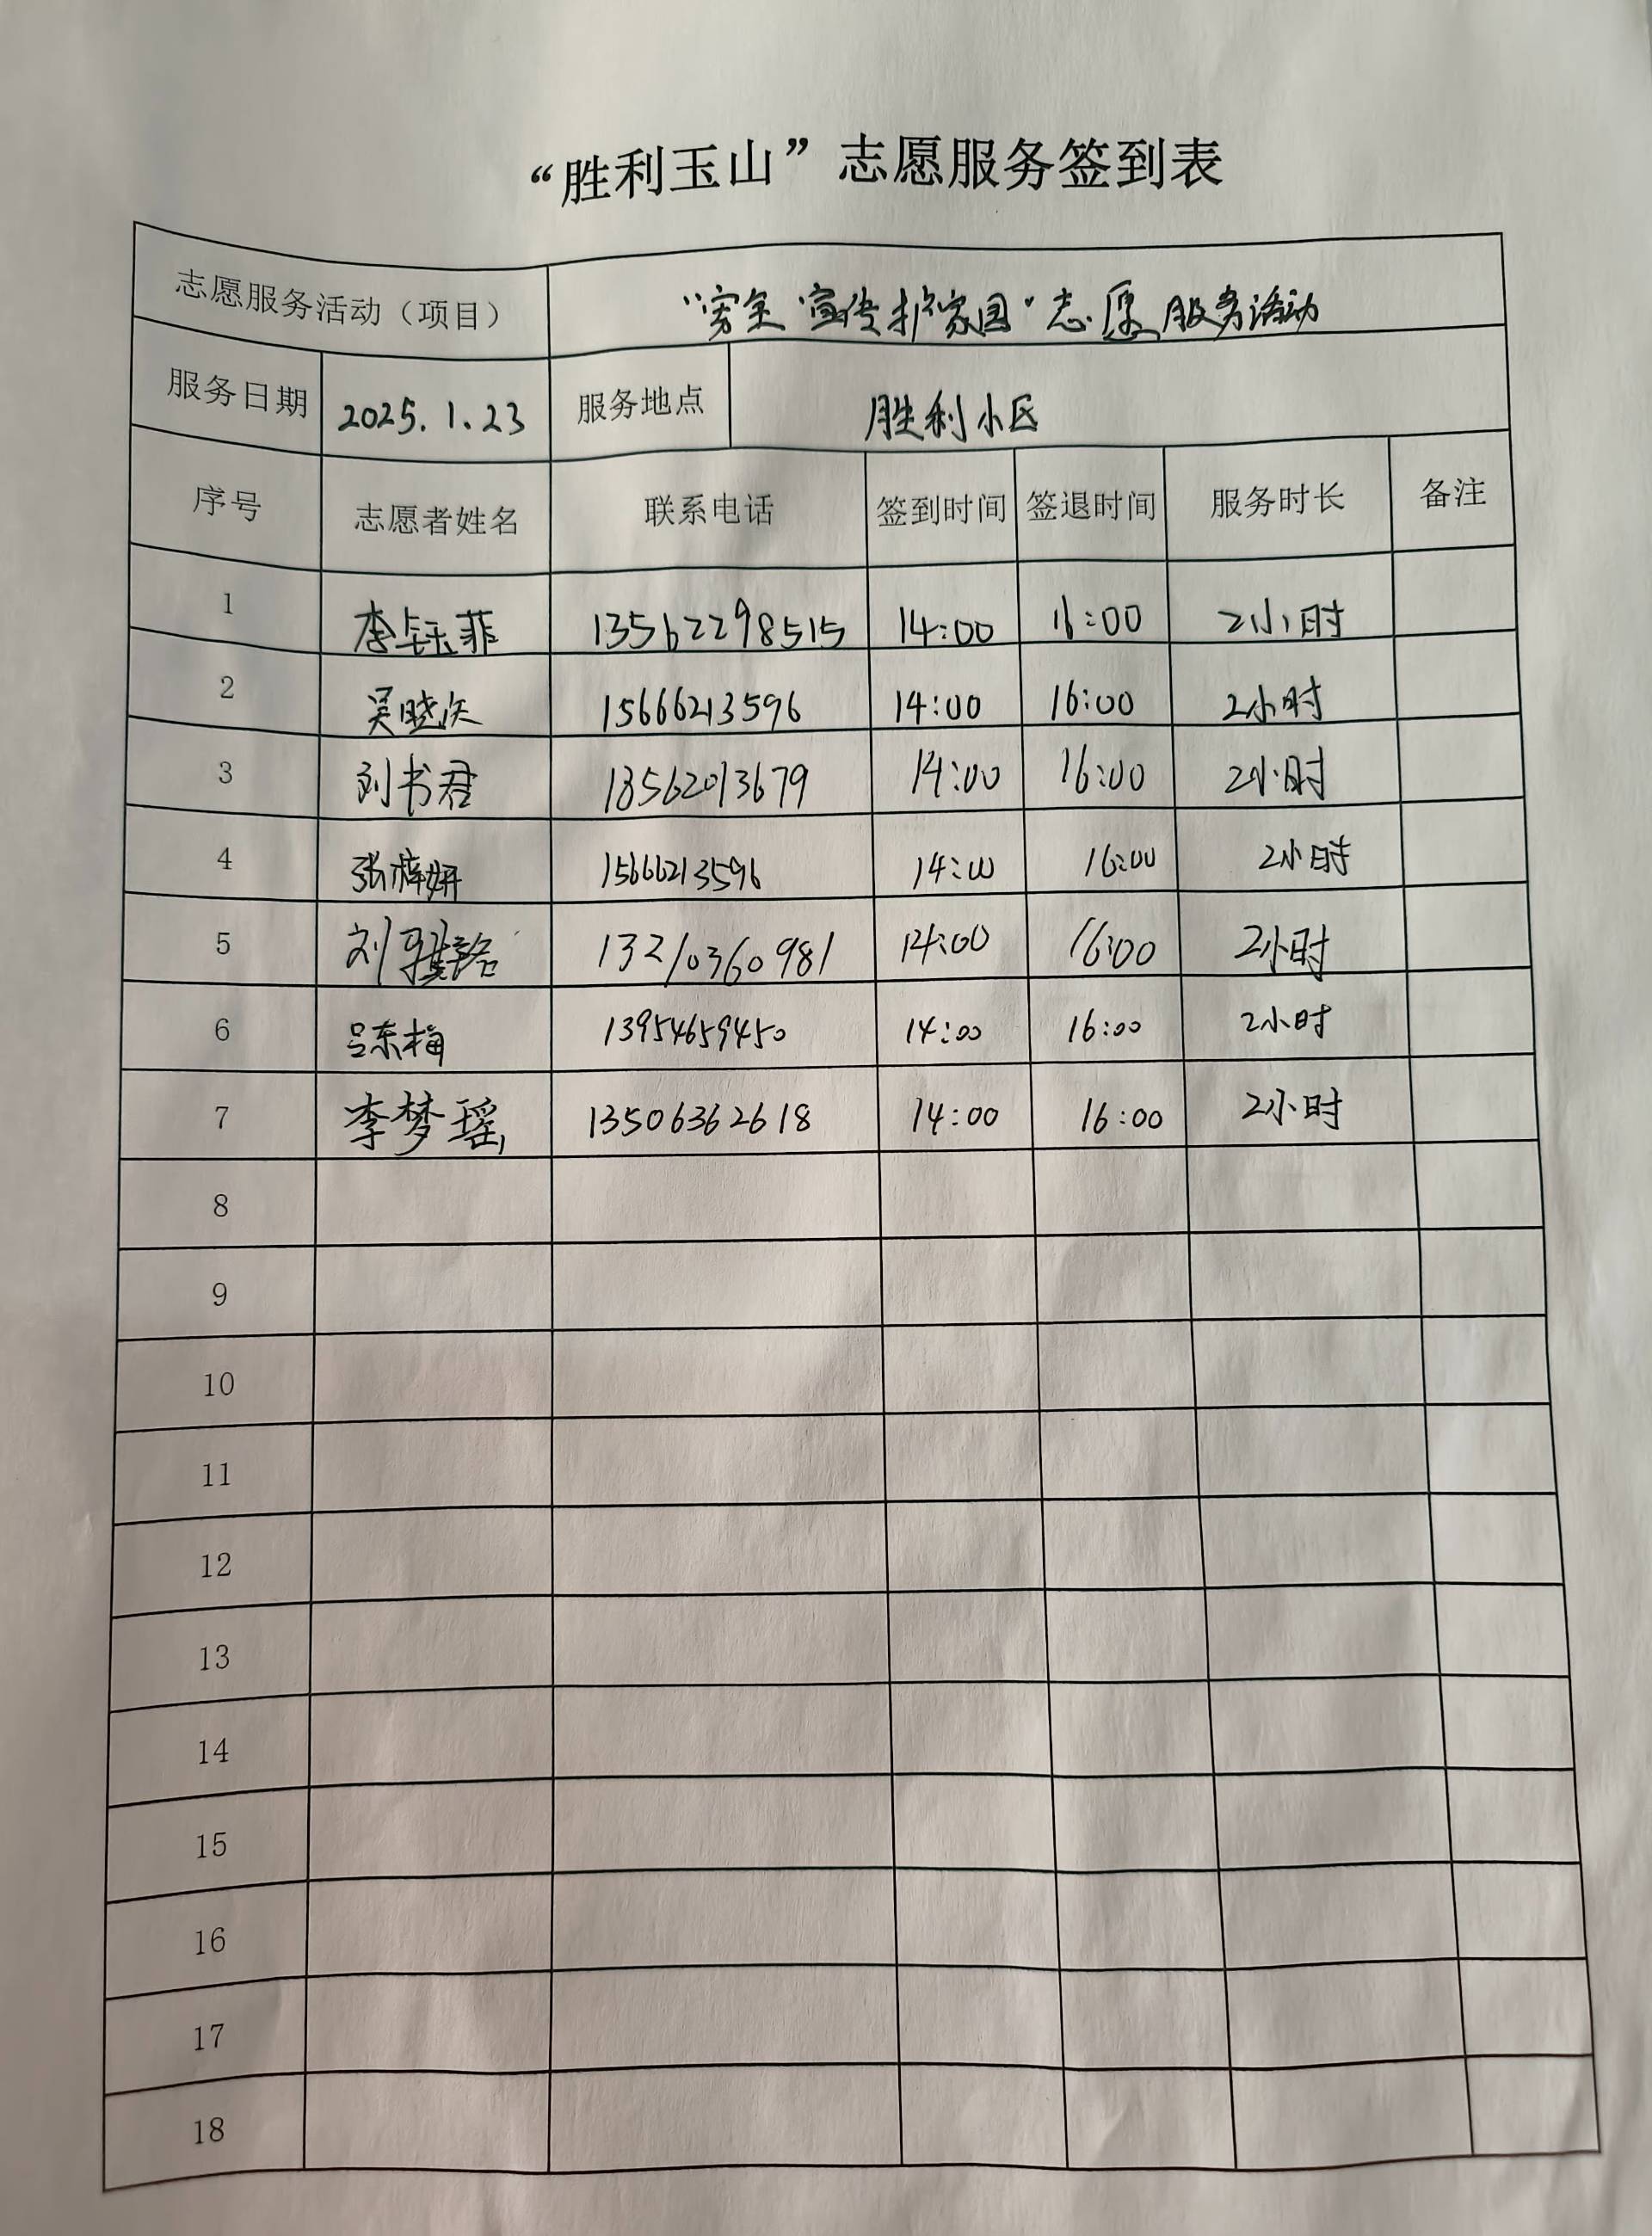 “胜利玉山”志愿服务签到表
志愿服务活动（项目） “安全宣传护家园”志愿服务活动
服务日期 2025.1.23 服务地点 胜利小区
序号 志愿者姓名 联系电话 签到时间 签退时间 服务时长 备注
1 李钰菲 13562298515 14:00 16:00 2小时
2 吴晓 15666213596 14:00 16:00 2小时
3 刘书君 18562013679 14:00 16:00 2小时
4 张梓妍 15666213596 14:00 16:00 2小时
5 刘 13210360981 14:00 16:00 2小时
6 吕东梅 13954659450 14:00 16:00 2小时
7 李梦瑶 13506362618 14:00 16:00 2小时
8
9
10
11
12
13
14
15
16
17
18